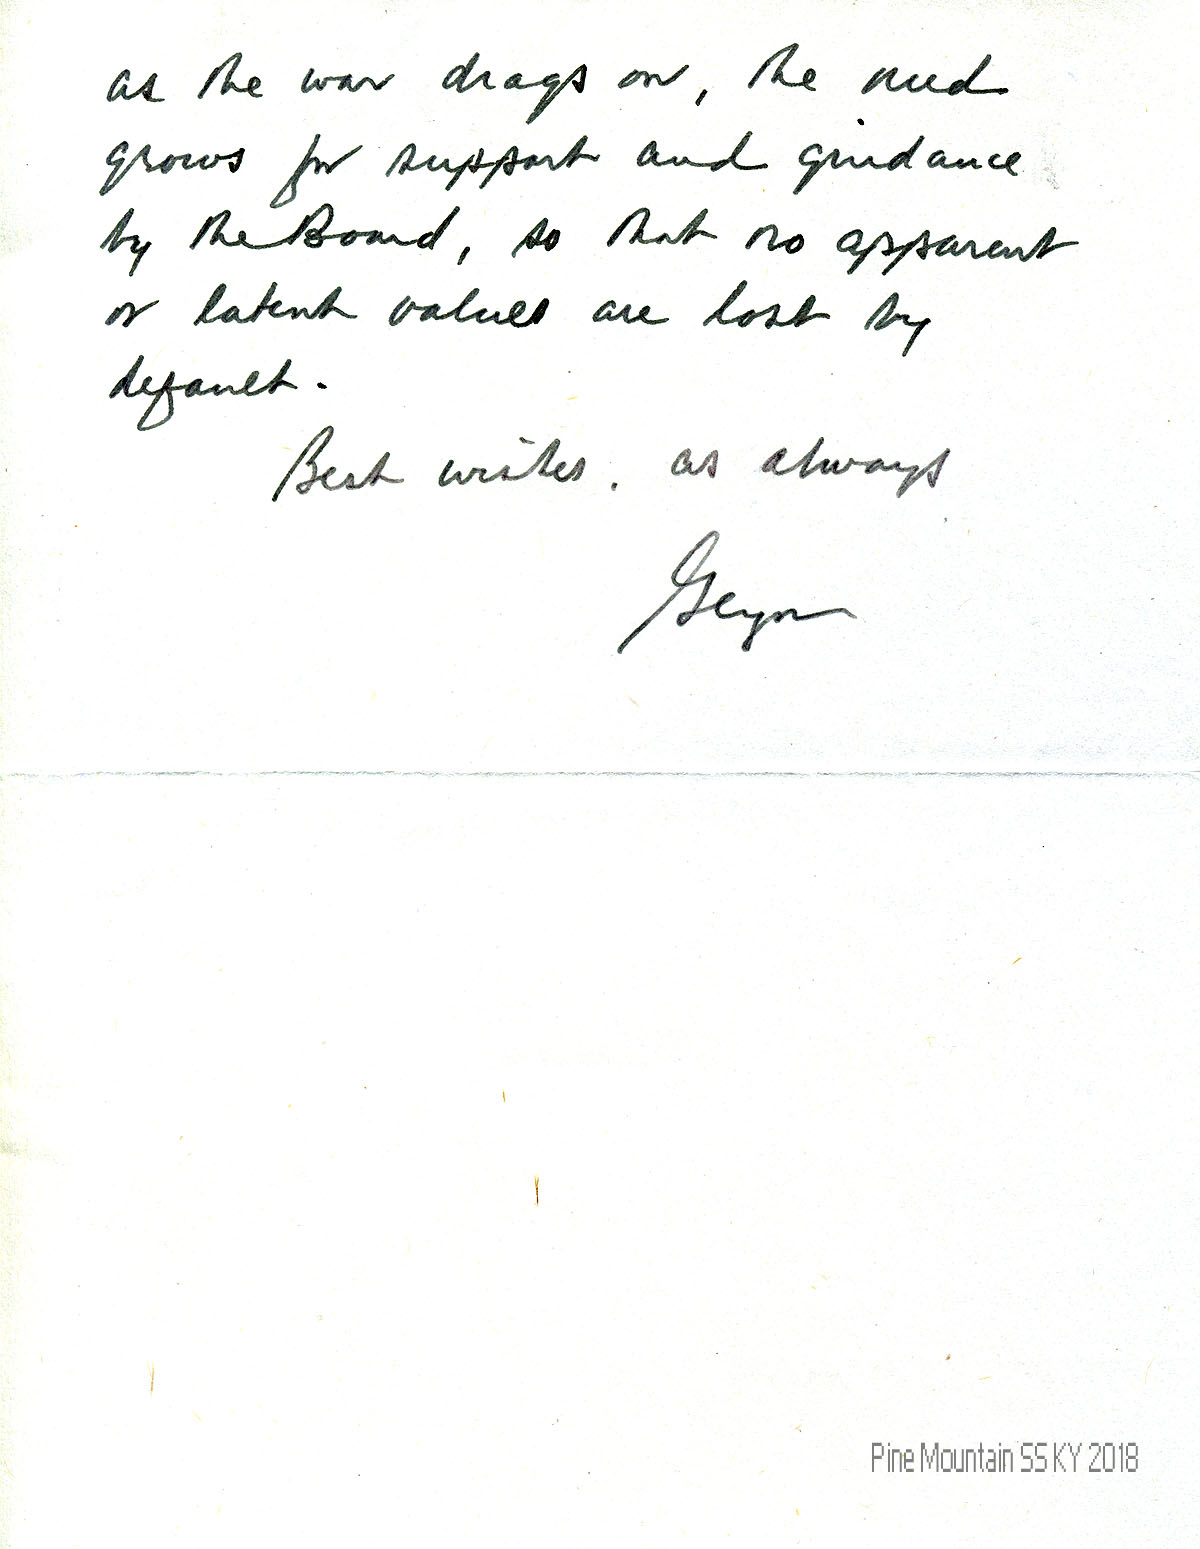 as the war drags on, the need
grows for support and guidance
by the Board, so that no apparent
or latent values are lost by
default.
Best wishes, as always
Glyn
Pine Mountain SS KY 2018